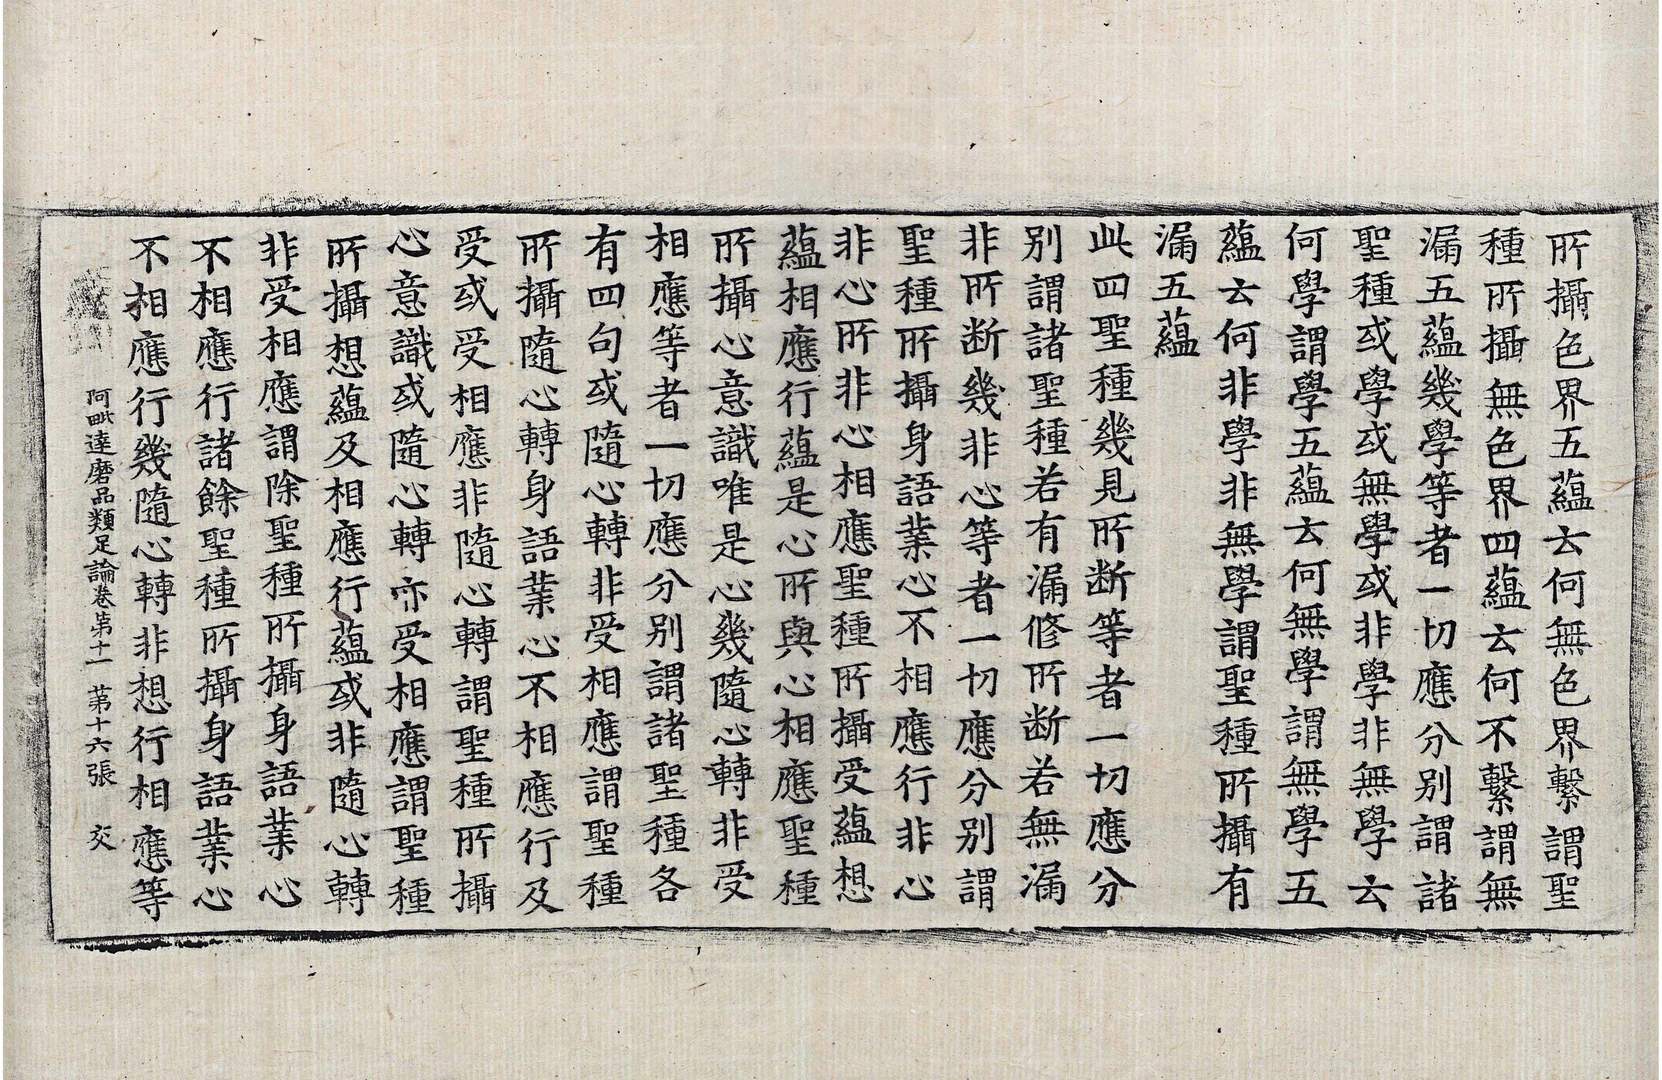 所攝色界五蘊云何無色界繫謂聖
種所攝無色界四蘊云何不繫謂無
漏五蘊幾學等者一切應分別謂諸
聖種或學或無學或非學非無學云
何學謂學五蘊云何無學謂無學五
蘊云何非學非無學謂聖種所攝有
漏五蘊
此四聖種幾見所断等者一切應分
別謂諸聖種若有漏修所断若無漏
非所断幾非心等者一切應分別謂
聖種所攝身語業心不相應行非心
非心所非心相應聖種所攝受蘊想
蘊相應行蘊是心所與心相應聖種
所攝心意識唯是心幾隨心轉非受
相應等者一切應分別謂諸聖種各
有四句或隨心轉非受相應謂聖種
所攝隨心轉身語業心不相應行及
受或受相應非隨心轉謂聖種所攝
心意識或隨心轉亦受相應謂聖種
所攝想蘊及相應行蘊或非隨心轉
非受相應謂除聖種所攝身語業心
不相應行諸餘聖種所攝身語業心
不相應行幾隨心轉非想行相應等
阿毗達磨品類足論卷第十一 第十六張 交